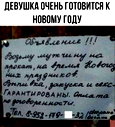 ДЕВУШКА ОЧЕНЬ ГОТОВИТСЯ К
НОВОМУ ГОДУ
Объявление !!!
Возьму мужчину на
прокат, на время Нового
них праздников.
закуска и секс
ГАРАНТИРОВАНЫ. Оплата
по договоренности.